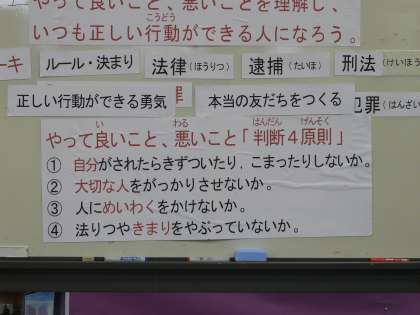 やって良いこと、悪いことを理解し、
いつも正しい行動ができる人になろう。
こうどう
ーキ
ルール・決まり
法律(ほうりつ)
逮捕(たいほ)
刑法(けいほう
正しい行動ができる勇気
罪
本当の友だちをつくる
犯罪(はんざい
やって良いこと、悪いこと「判断4原則」
い わる はんだん げんそく
① 自分がされたらきずついたり、こまったりしないか。
② 大切な人をがっかりさせないか。
③ 人にめいわくをかけないか。
④ 法りつやきまりをやぶっていないか。